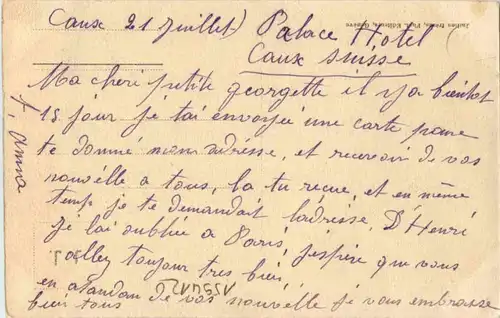 Caux 21 Juillet) Palace Hotel
Caux Suisse
Jullien frères, Phot. Editeurs, Genève
Ma cheri petite georgette il y a bientot
15 jour je t'ai envoyée une carte pour
te donné mon adrèsse, et recevoir de vos
nouvélle a tous, la tu recue, et en même
temp je te demandait l'adrèsse, D Henri
je l'ai oublié a Paris, j'espére que vous
allez toujour tres bien,
en atandan de vos nouvelle je vous embrasse
bien tous
A559472
f, Anna